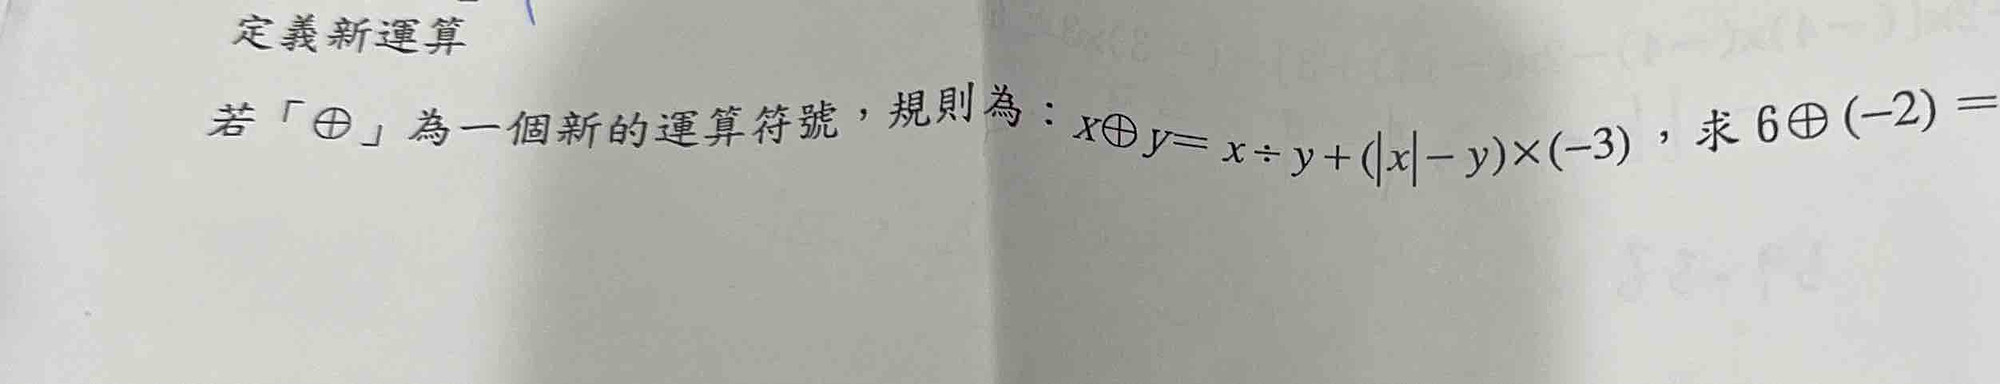 定義新運算
若「⊕」為一個新的運算符號，規則為：x⊕y= x÷y+(|x|−y)×(−3)，求 6⊕(−2) =